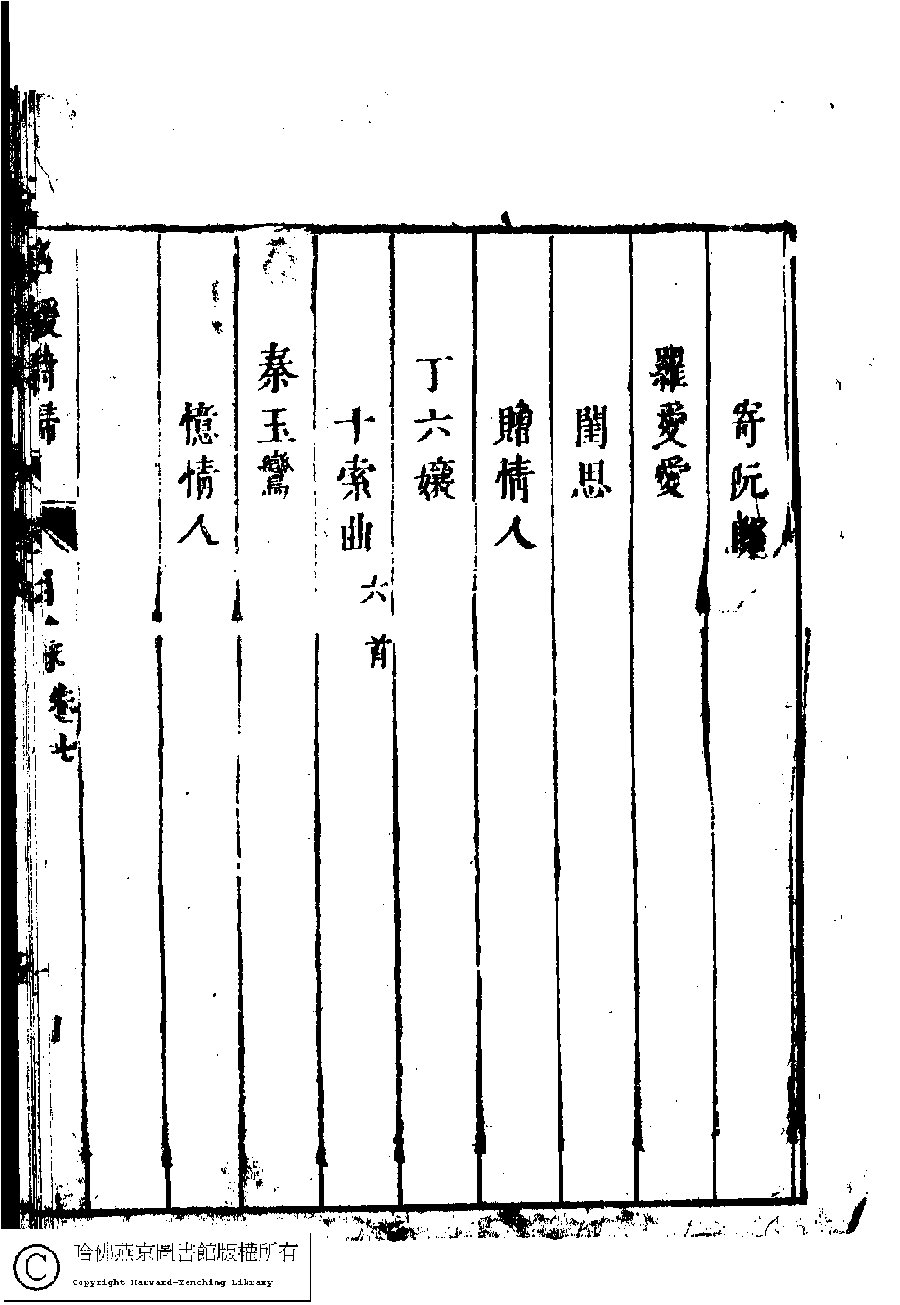 寄阮郎
羅愛愛
閨思
贈情人
丁六孃
十索曲 六首
秦玉鸞
憶情人
名媛詩歸
目錄卷七
哈佛燕京圖書館版權所有
Copyright Harvard-Yenching Library